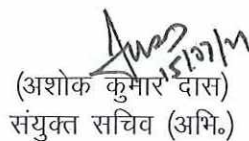 15/07/21
(अशोक कुमार दास)
संयुक्त सचिव (अभि॰)